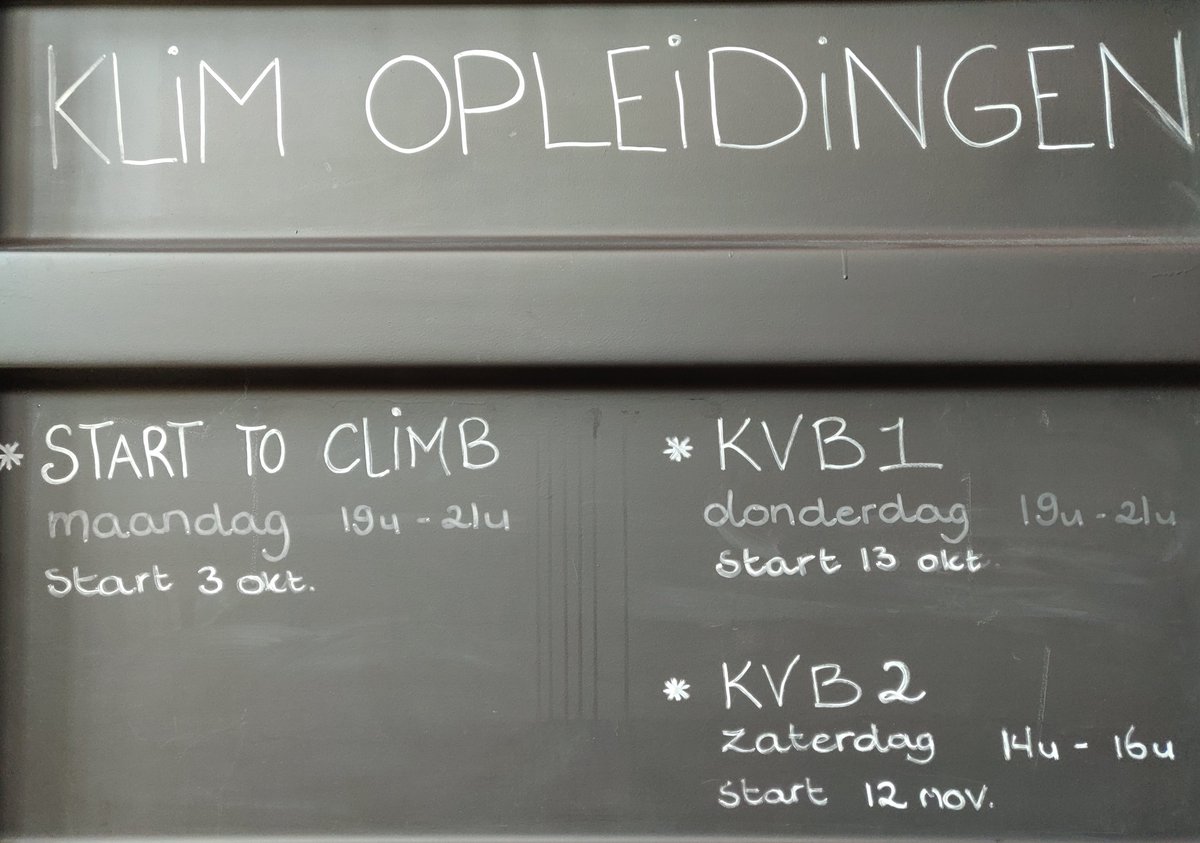 KLiM OPLEiDiNGEN
* START TO CLiMB
maandag 19u - 21u
start 3 okt.
* KVB1
donderdag 19u - 21u
start 13 okt.
* KVB 2
zaterdag 14u - 16u
start 12 nov.